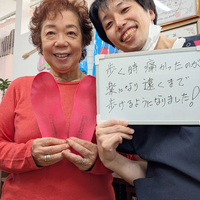 歩く時 痛かったのが
楽になり遠くまで
歩けるようになりました!